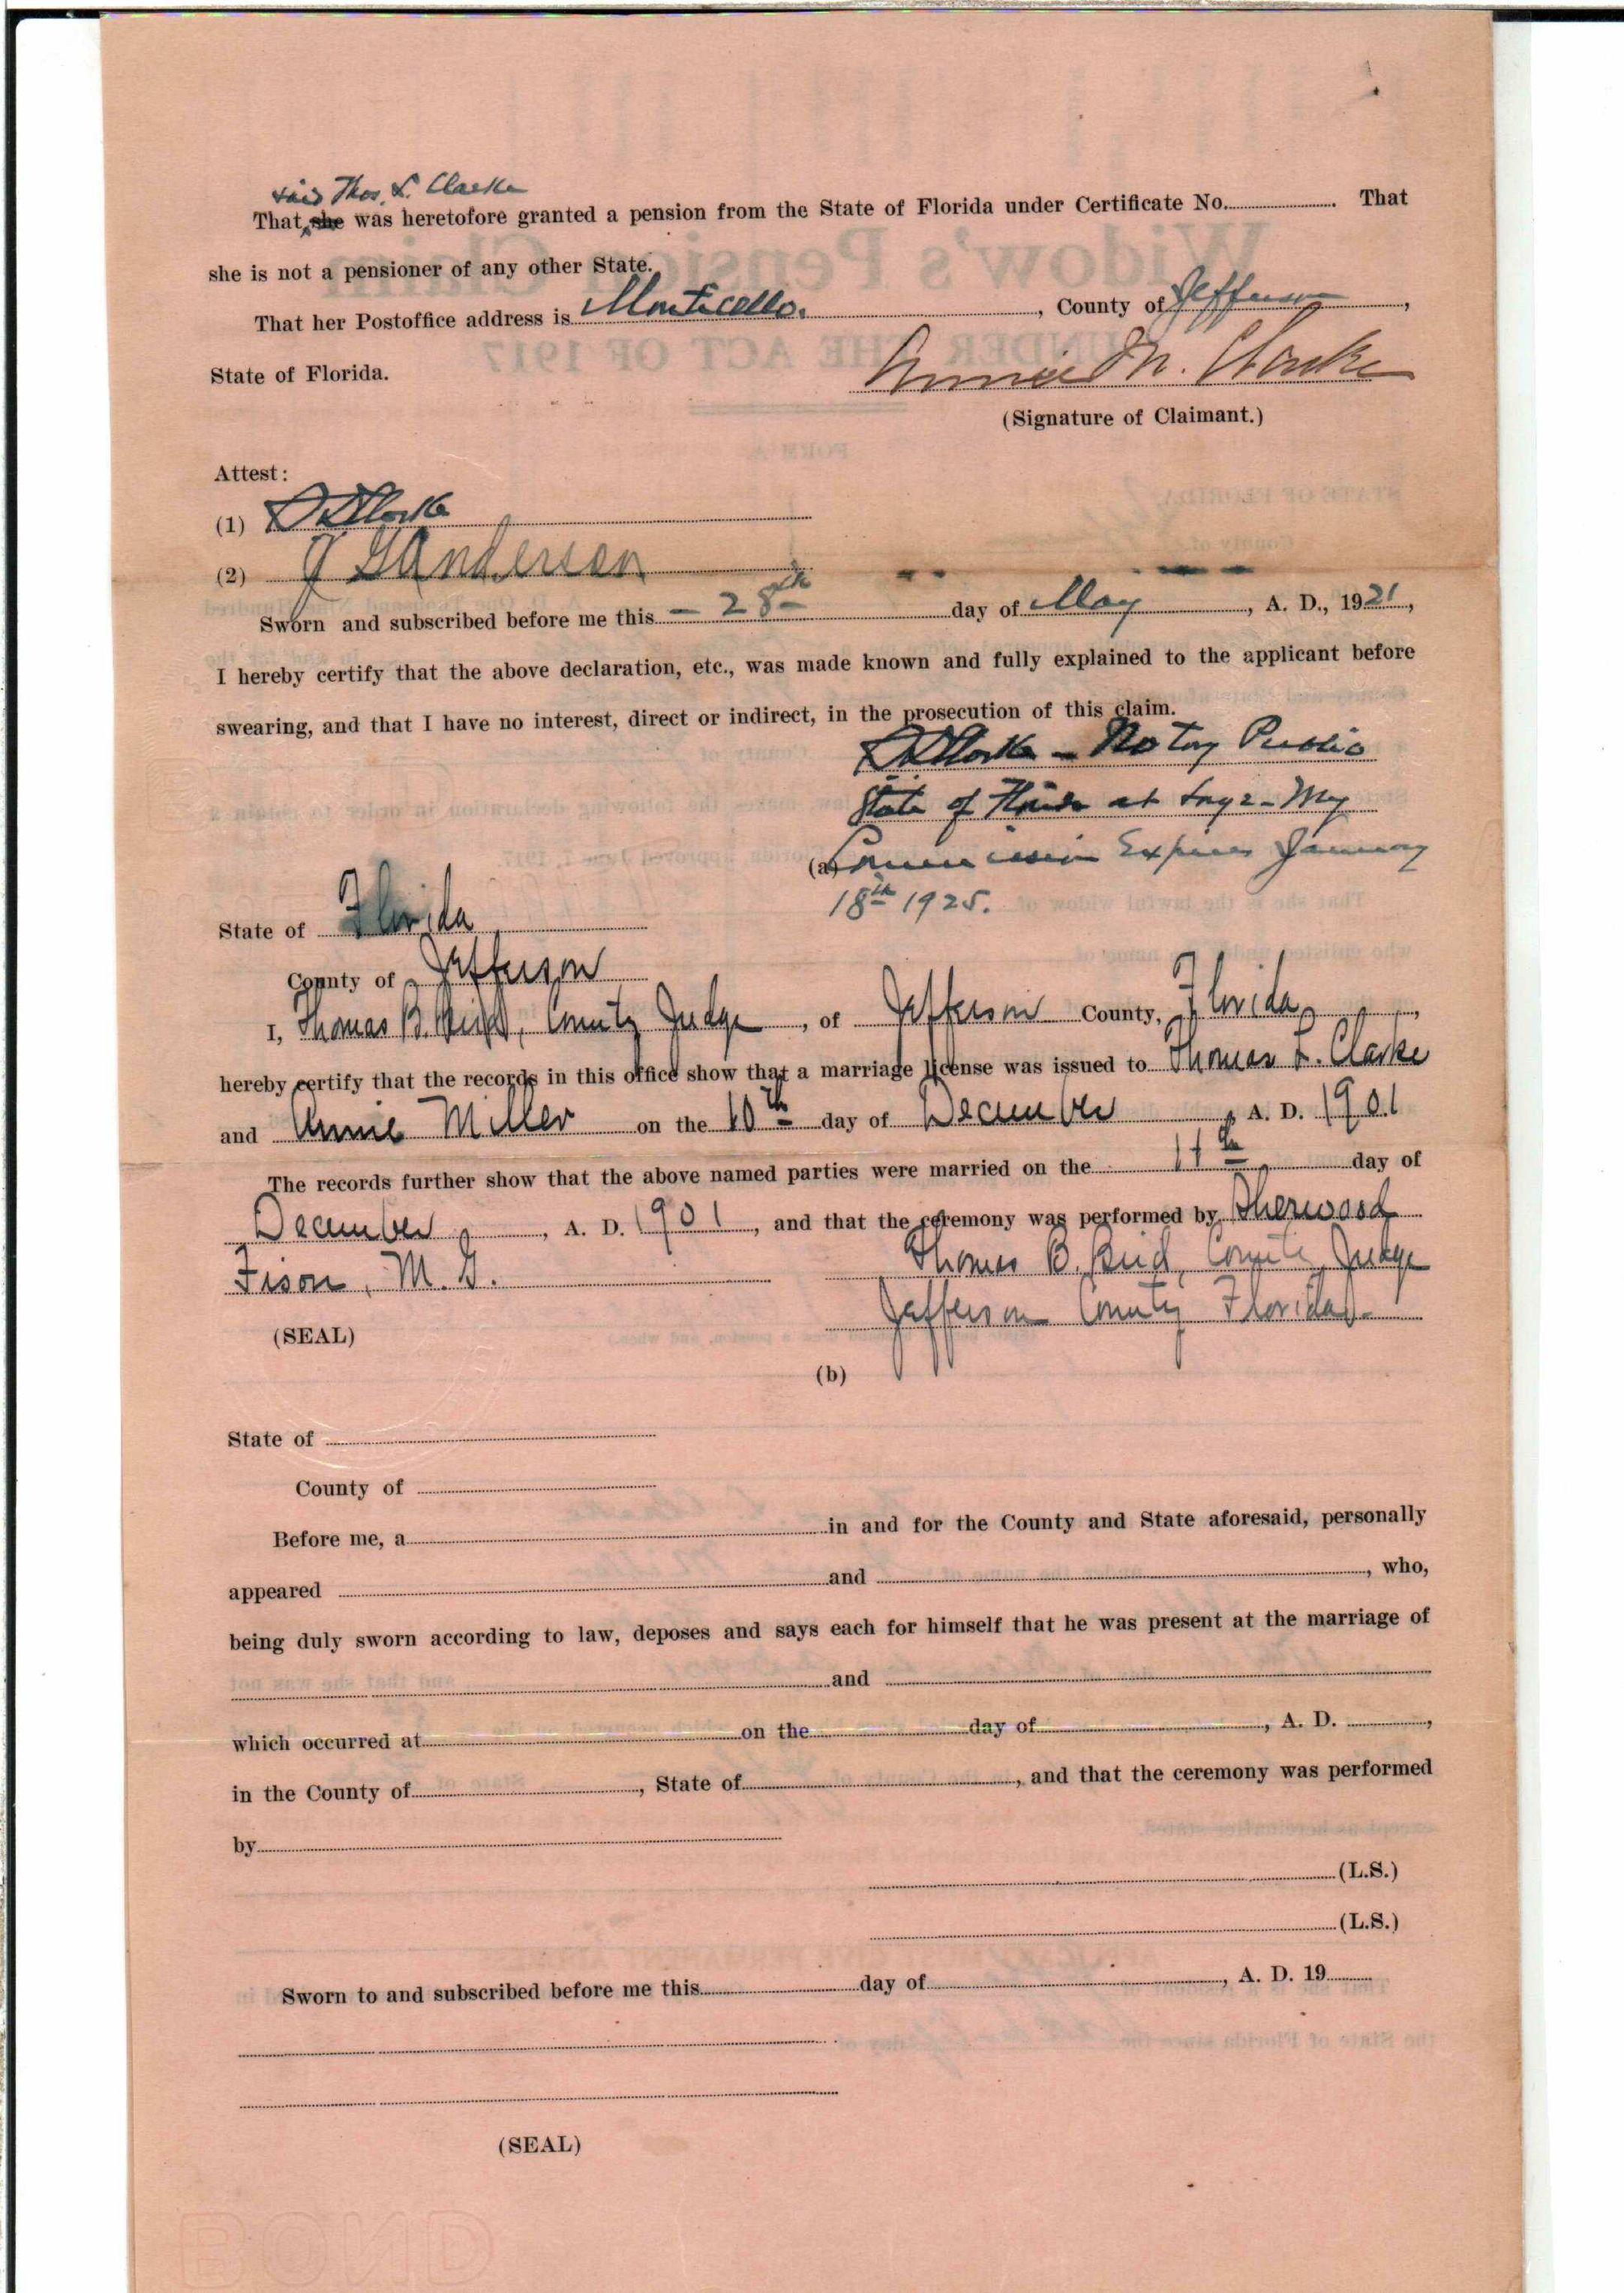 said Thos. L. Clarke
That she was heretofore granted a pension from the State of Florida under Certificate No. That
she is not a pensioner of any other State.
That her Postoffice address is Monticello. , County of Jefferson ,
State of Florida.
Annie M. Clarke
(Signature of Claimant.)
Attest:
(1) Clarke
(2) Anderson
Sworn and subscribed before me this - 28th - day of May , A. D., 1921,
I hereby certify that the above declaration, etc., was made known and fully explained to the applicant before
swearing, and that I have no interest, direct or indirect, in the prosecution of this claim.
Clarke - Notary Public
State of Florida at Large - My
(a) Commission Expires January
18th 1925.
State of Florida
County of Jefferson
I, Thomas B. Bird, County Judge , of Jefferson County, Florida ,
hereby certify that the records in this office show that a marriage license was issued to Thomas L. Clarke
and Annie Miller on the 10th day of December , A. D. 1901
The records further show that the above named parties were married on the 11th day of
December , A. D. 1901 , and that the ceremony was performed by
M. G.
Thomas B. Bird, County Judge
Jefferson County Florida
(SEAL)
(b)
State of
County of
Before me, a in and for the County and State aforesaid, personally
appeared and , who,
being duly sworn according to law, deposes and says each for himself that he was present at the marriage of
and
which occurred at on the day of , A. D. ,
in the County of , State of , and that the ceremony was performed
by
(L.S.)
(L.S.)
Sworn to and subscribed before me this day of , A. D. 19
(SEAL)
BOND